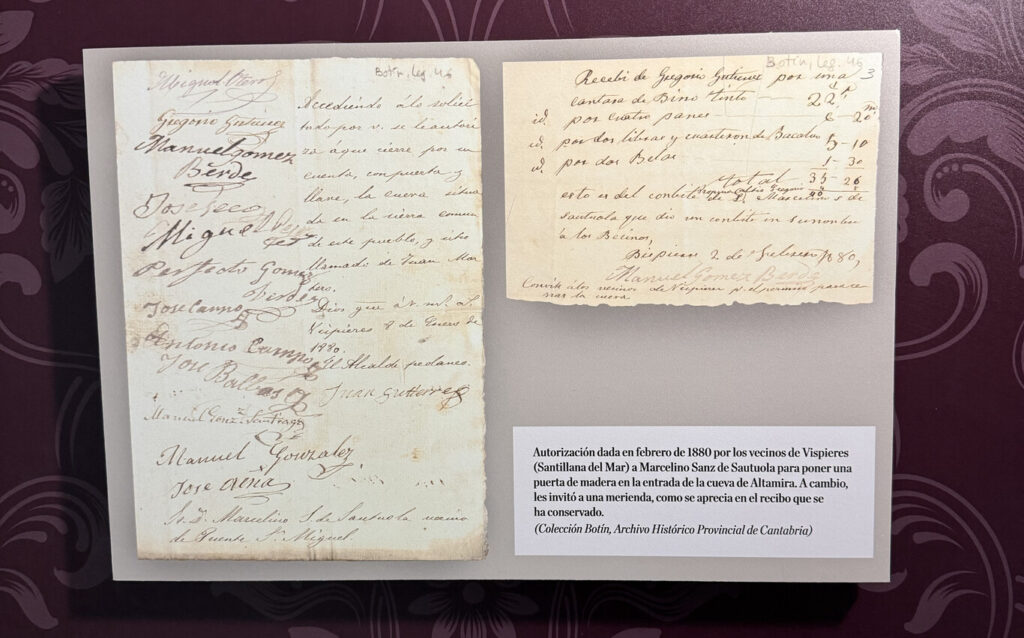 Botín, leg. 46
Miguel Otero
Gregorio Gutierrez
Manuel Gomez
Berde
Jose Seco
Miguel
Perfecto Gomez
Berde
Jose Campo
Antonio Campo
Jose Balbas
Manuel Gonz. Santiago
Manuel Gonzalez
Jose
Accediendo á lo solici
tado por v. se le autori
za á que cierre por su
cuenta, con puerta y
llave, la cueva situa
da en la sierra comun
de este pueblo, y sitio
llamado de Juan Mor
tero.
Dios gue á v. ms. as.
Vispieres 8 de Enero de
1880.
El Alcalde pedaneo.
Juan Gutierrez
Sr. D. Marcelino S. de Sautuola vecino
de Puente S. Miguel.
Botín, leg. 46
3
Recibi de Gregorio Gutierrez por una
cantara de Bino tinto 22
id. por cuatro panes 6 20
id. por dos libras y cuarteron de Bacalao 5-10
id. por dos Belas 1-30
total 35-26
esto es del conbite de D. Marcelino S de
Sautuola que dio un conbite en su nonbre
á los Becinos,
Bispieres 2 de Febrero 1880,
Manuel Gomez Berde
Convite á los vecinos de Vispieres p. el permiso para ce
rrar la cueva
Autorización dada en febrero de 1880 por los vecinos de Vispieres
(Santillana del Mar) a Marcelino Sanz de Sautuola para poner una
puerta de madera en la entrada de la cueva de Altamira. A cambio,
les invitó a una merienda, como se aprecia en el recibo que se
ha conservado.
(Colección Botín, Archivo Histórico Provincial de Cantabria)